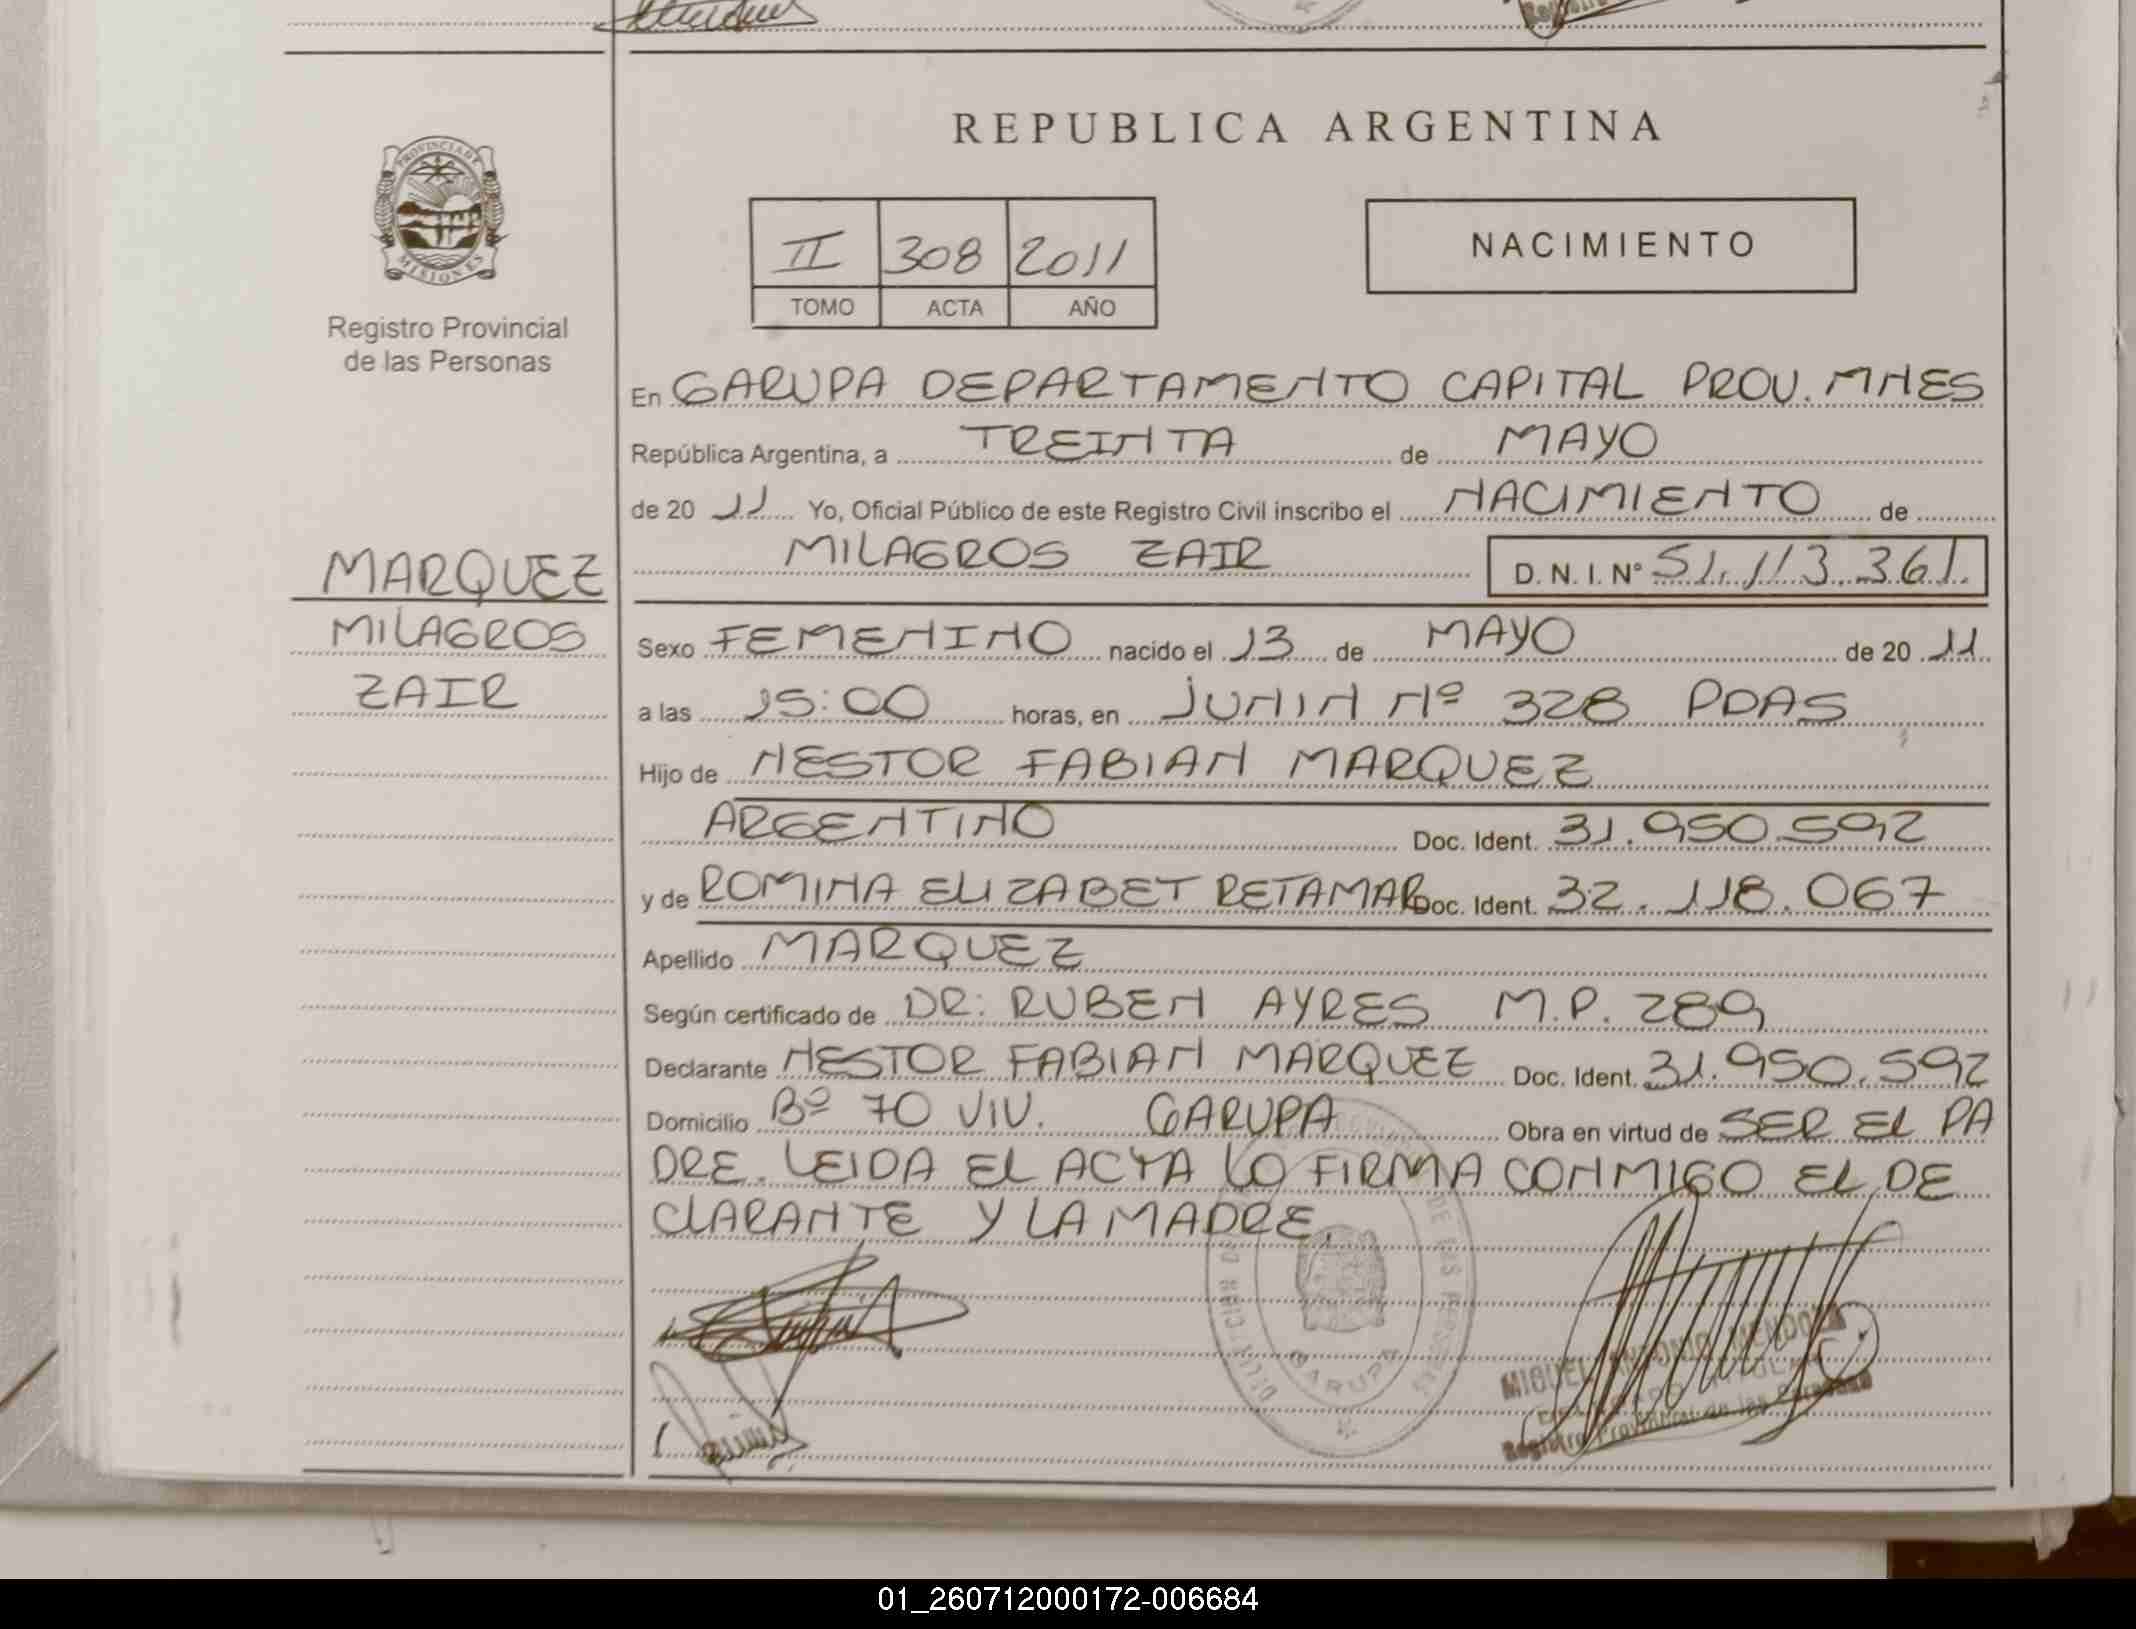 REPUBLICA ARGENTINA
PROVINCIA DE
MISIONES
Registro Provincial
de las Personas
II 308 2011
TOMO ACTA AÑO
NACIMIENTO
En GARUPA DEPARTAMENTO CAPITAL PROV. MNES
República Argentina, a TREINTA de MAYO
de 20 11 Yo, Oficial Público de este Registro Civil inscribo el NACIMIENTO de
MILAGROS ZAIR D. N. I. N° 51.113.361.
MARQUEZ
MILAGROS
ZAIR
Sexo FEMENINO nacido el 13 de MAYO de 20 11
a las 15:00 horas, en JUNIN Nº 328 PDAS
Hijo de NESTOR FABIAN MARQUEZ
ARGENTINO Doc. Ident. 31.950.592
y de ROMINA ELIZABET RETAMAR Doc. Ident. 32.118.067
Apellido MARQUEZ
Según certificado de DR: RUBEN AYRES M.P. 289
Declarante NESTOR FABIAN MARQUEZ Doc. Ident. 31.950.592
Domicilio Bº 70 VIV. GARUPA Obra en virtud de SER EL PA
DRE. LEIDA EL ACTA LO FIRMA CONMIGO EL DE
CLARANTE Y LA MADRE.
DE LAS PERSONAS
GARUPA
MIGUEL ANTONIO MENDOZA
Registro Provincial de las Personas
01_260712000172-006684